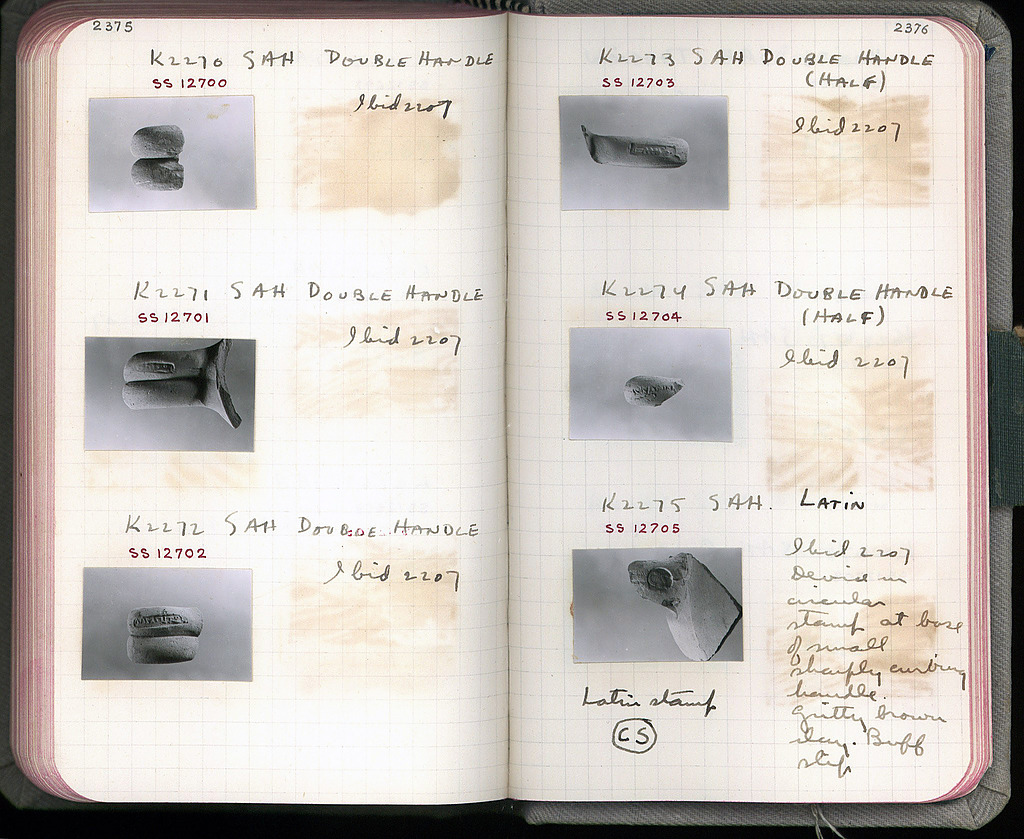 2375
K2270 SAH DOUBLE HANDLE
SS 12700
Ibid 2207
K2271 SAH DOUBLE HANDLE
SS 12701
Ibid 2207
K2272 SAH DOUBLE HANDLE
SS 12702
Ibid 2207
2376
K2273 SAH DOUBLE HANDLE
(HALF)
SS 12703
Ibid 2207
K2274 SAH DOUBLE HANDLE
(HALF)
SS 12704
Ibid 2207
K2275 SAH. LATIN
SS 12705
Ibid 2207
Device in
circular
stamp at base
of small
sharply curving
handle.
Gritty brown
clay. Buff
slip
Latin stamp
CS